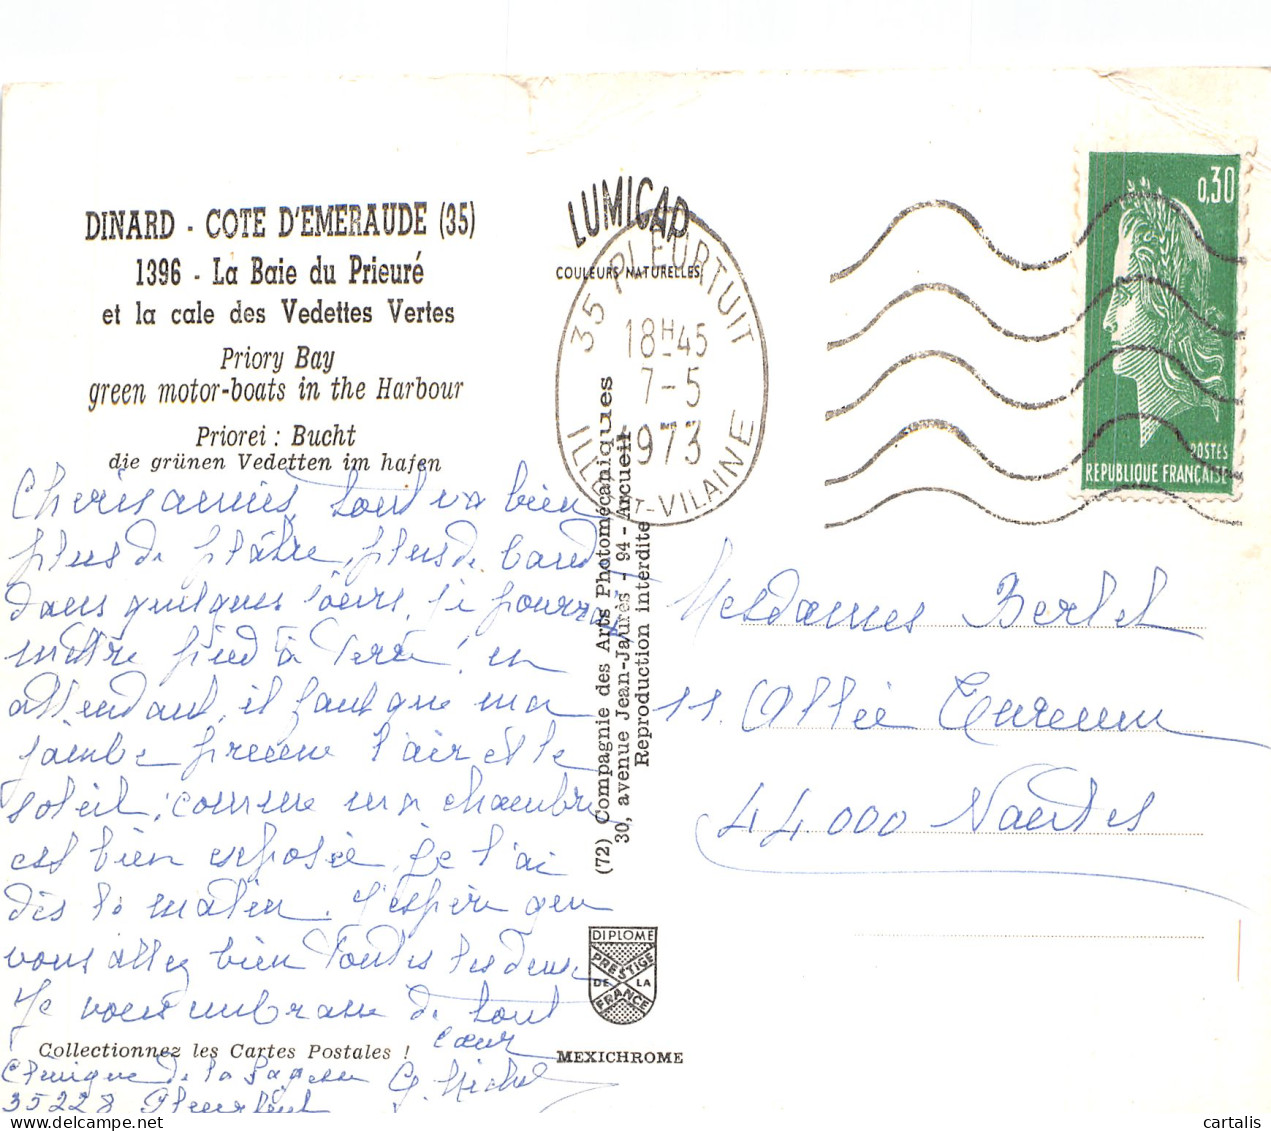 DINARD - COTE D'EMERAUDE (35)
1396 - La Baie du Prieuré
et la cale des Vedettes Vertes
Priory Bay
green motor-boats in the Harbour
Priorei : Bucht
die grünen Vedetten im hafen
Cheries amies, tout va bien
plus de plâtre, plus de bande
dans quelques jours, je pourrai
mettre pied à Terre ! en
attendant, il faut que ma
jambe prenne l'air et le
soleil ; comme ma chambre
est bien exposée, je l'ai
dès le matin. J'espère que
vous allez bien toutes les deux
Je vous embrasse de tout
cœur
G. Michel
Clinique de la Sagesse
35228 Pleurtuit
Collectionnez les Cartes Postales !
LUMICAP
COULEURS NATURELLES
35 PLEURTUIT
18H45
7-5
1973
ILLE-ET-VILAINE
(72) Compagnie des Arts Photomécaniques
30, avenue Jean-Jaurès - 94 - Arcueil
Reproduction interdite
DIPLOME
PRESTIGE
DE LA
FRANCE
MEXICHROME
0,30
POSTES
REPUBLIQUE FRANÇAISE
Mesdames Bertet
11. Allée Turenne
44.000 Nantes
cartalis